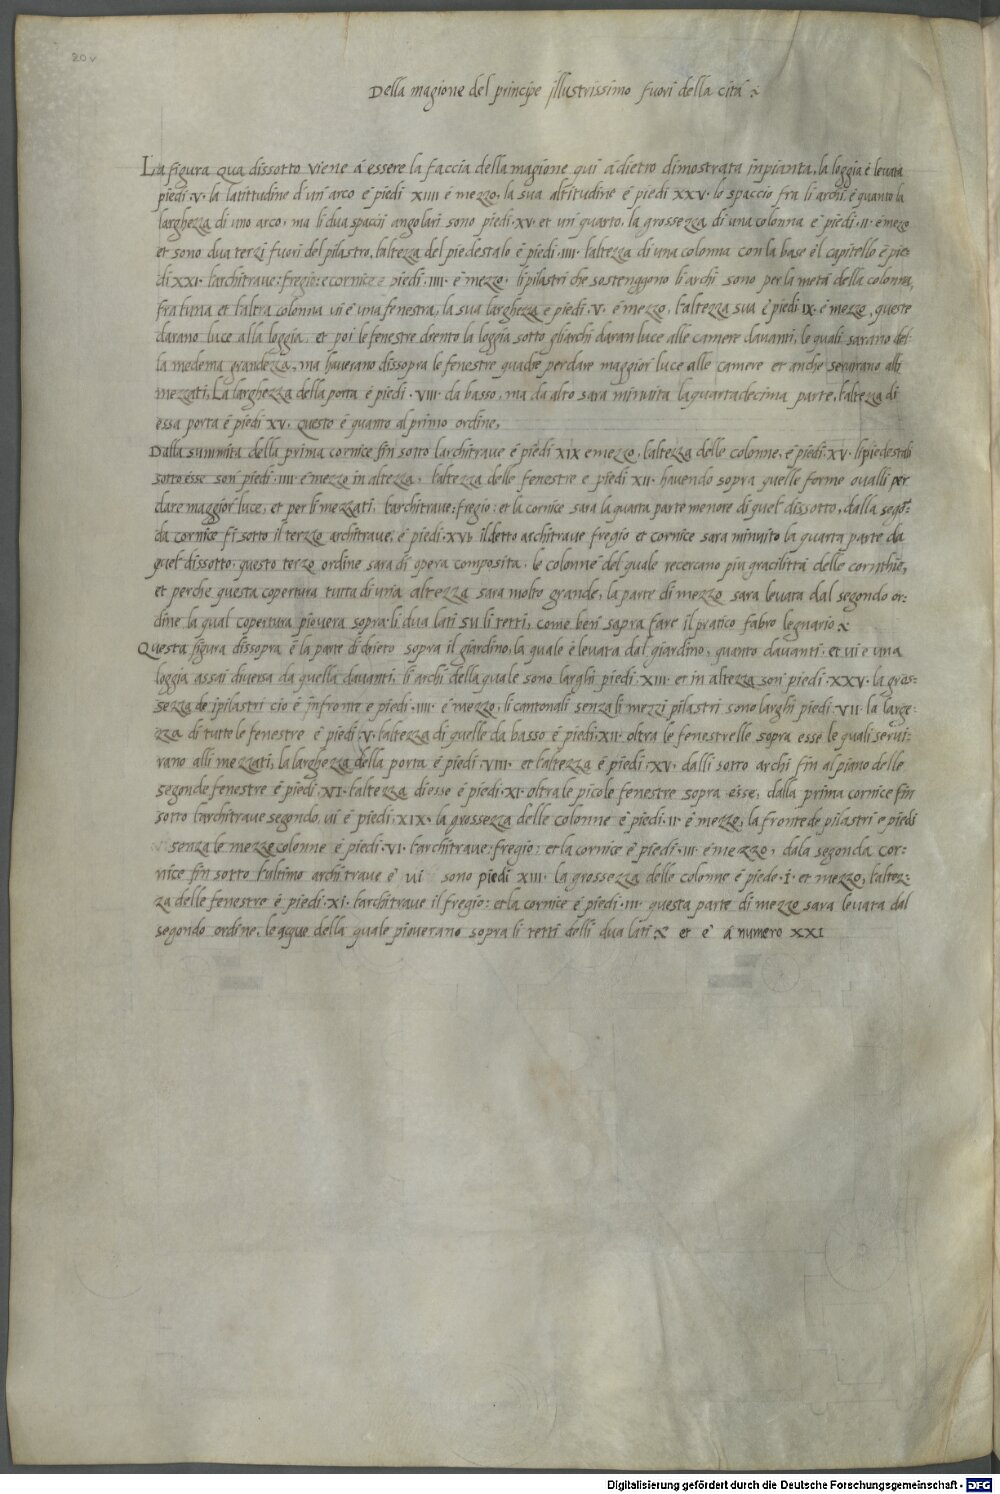 20 v
Della magione del principe illustrissimo fuori della cità
La figura qua dissotto viene á essere la faccia della magione qui á dietro dimostrata inpianta, la loggia é levata
piedi ·V· la latittudine d'un arco é piedi XIIII é mezzo, la sua altitudine é piedi XXV· lo spaccio fra li archi é quanto la
larghezza di uno arco, ma li dua spacii angolari sono piedi ·XV· et un quarto, la grossezza di una colonna é piedi ·II· é mezo
et sono dua terzi fuori del pilastro, l'altezza del piedestalo é piedi ·IIII· l'altezza di una colonna con la base é'l capitello é pie-
di XXI· l'architrave: fregio: e cornice é piedi ·IIII· é mezzo· li pilastri che sostenggono li archi sono per la metá della colonna,
fra l'una et l'altra colonna vi é una fenestra, la sua larghezza é piedi ·V· é mezzo, l'altezza sua é piedi IX· é mezzo, queste
darano luce alla loggia, et poi le fenestre drento la loggia sotto gli archi daran luce alle camere davanti, le quali sarano del-
la medema grandezza, ma haverano dissopra le fenestre quadre per dare maggior luce alle camere et anche servirano alli
mezzati, La larghezza della porta é piedi ·VIII· da basso, ma da alto sara minuita la quartadecima parte, l'altezza di
essa porta é piedi XV· questo é quanto al primo ordine,
Dalla summita della prima cornice fin sotto larchitrave é piedi XIX e mezzo, l'altezza delle colonne, é piedi ·XV· li piedestali
sotto esse son piedi ·IIII· é mezzo in altezza, l'altezza delle fenestre e piedi XII· havendo sopra quelle forme ovalli per
dare maggior luce, et per li mezzati, l'architrave: fregio: et la cornice sara la quarta parte menore di quel dissotto, dalla segõ-
da cornice fi sotto il terzo architrave, é piedi ·XVI· il detto architrave fregio et cornice sara minuito la quarta parte da
quel dissotto, questo terzo ordine sara di opera composita, le colonne del quale recercano piu gracilittá delle corinthie,
et perche questa copertura tutta di una altezza sara molto grande, la parte di mezzo sara levata dal segondo or-
dine la qual copertura piovera sopra li dua lati su li tetti, come ben sapra fare il pratico fabro legnario
Questa figura dissopra é la parte di drieto sopra il giardino, la quale é levata dal giardino, quanto davanti, et vi é una
loggia assai diversa da quella davanti, li archi della quale sono larghi piedi XIII· et in altezza son piedi ·XXV· la gros-
sezza de i pilastri cio é in fronte e piedi ·IIII· é mezzo, li cantonali senza li mezzi pilastri sono larghi piedi VII· la large-
zza di tutte le fenestre é piedi ·V· l'altezza di quelle da basso é piedi ·XII· oltra le fenestrelle sopra esse le quali servi-
rano alli mezzati, la larghezza della porta é piedi ·VIII· et l'altezza é piedi ·XV· dalli sotto archi fin al piano delle
segonde fenestre é piedi ·VI· l'altezza di esse é piedi ·XI· oltra le picole fenestre sopra esse, dalla prima cornice fin
sotto l'architrave segondo, vi é piedi ·XIX· la grossezza delle colonne é piedi ·II· é mezzo, la fronte de pilastri e piedi
senza le mezze colonne é piedi ·VI· l'architrave: fregio: et la cornice é piedi ·III· é mezzo, dala segonda cor-
nice fin sotto l'ultimo architrave é vi sono piedi XIII· la grossezza delle colonne é piede ·I· et mezzo, l'altez-
za delle fenestre é piedi ·XI· l'architrave il fregio: et la cornice é piedi ·III· questa parte di mezzo sara levata dal
segondo ordine, le acque della quale pioverano sopra li tetti delli dua lati et e' á numero XXI
Digitalisierung gefördert durch die Deutsche Forschungsgemeinschaft - DFG